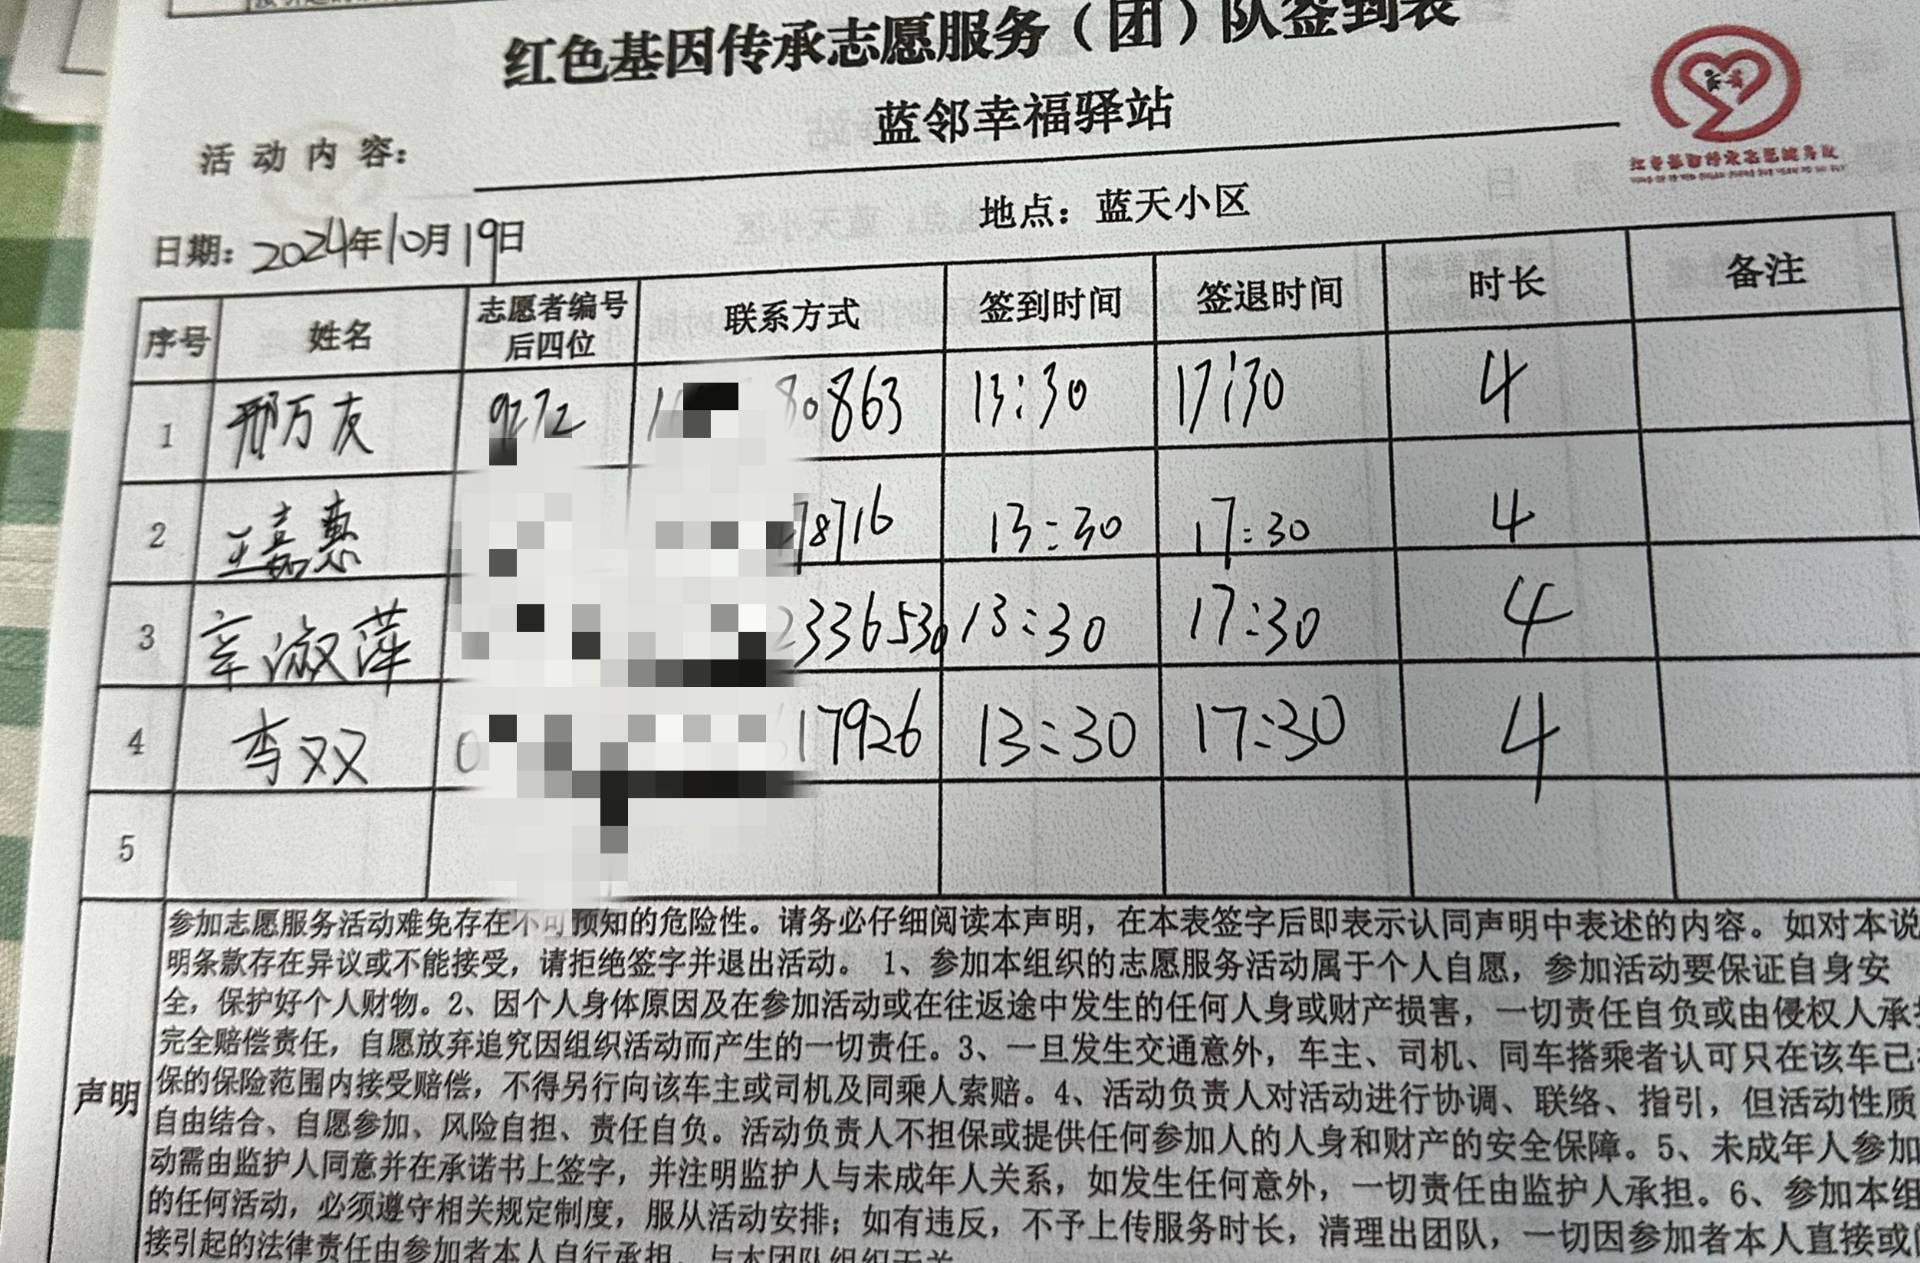 红色基因传承志愿服务（团）队签到表
蓝邻幸福驿站
活动内容：
日期：2024年10月19日
地点：蓝天小区
序号 姓名 志愿者编号后四位 联系方式 签到时间 签退时间 时长 备注
1 邢万友 9272 80863 13:30 17:30 4
2 王嘉惠 78716 13:30 17:30 4
3 辛淑萍 2336530 13:30 17:30 4
4 李双 0 17926 13:30 17:30 4
5
声明
参加志愿服务活动难免存在不可预知的危险性。请务必仔细阅读本声明，在本表签字后即表示认同声明中表述的内容。如对本说
明条款存在异议或不能接受，请拒绝签字并退出活动。 1、参加本组织的志愿服务活动属于个人自愿，参加活动要保证自身安
全，保护好个人财物。2、因个人身体原因及在参加活动或在往返途中发生的任何人身或财产损害，一切责任自负或由侵权人承
完全赔偿责任，自愿放弃追究因组织活动而产生的一切责任。3、一旦发生交通意外，车主、司机、同车搭乘者认可只在该车已
保的保险范围内接受赔偿，不得另行向该车主或司机及同乘人索赔。4、活动负责人对活动进行协调、联络、指引，但活动性质
自由结合、自愿参加、风险自担、责任自负。活动负责人不担保或提供任何参加人的人身和财产的安全保障。5、未成年人参加
动需由监护人同意并在承诺书上签字，并注明监护人与未成年人关系，如发生任何意外，一切责任由监护人承担。6、参加本组
的任何活动，必须遵守相关规定制度，服从活动安排；如有违反，不予上传服务时长，清理出团队，一切因参加者本人直接或
接引起的法律责任由参加者本人自行承担，与本团队组织无关